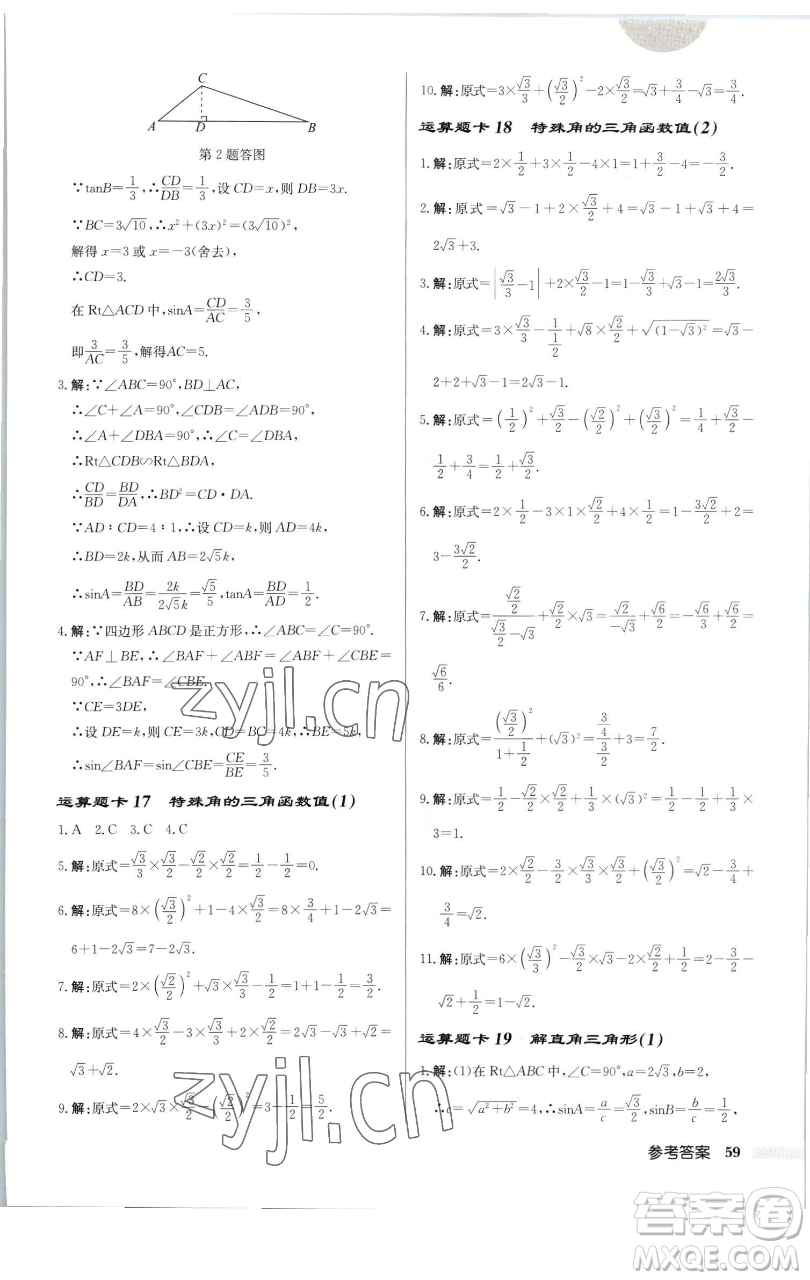 C
A D B
第2题答图
∵tanB=1/3,∴CD/DB=1/3,设CD=x,则DB=3x.
∵BC=3√10,∴x²+(3x)²=(3√10)²,
解得x=3或x=-3(舍去)
∴CD=3.
在Rt△ACD中,sinA=CD/AC=3/5,
即3/AC=3/5,解得AC=5.
3.解:∵∠ABC=90°,BD⊥AC,
∴∠C+∠A=90°,∠CDB=∠ADB=90°
∴∠A+∠DBA=90°,∴∠C=∠DBA,
∴Rt△CDB∽Rt△BDA,
∴CD/BD=BD/DA,∴BD²=CD·DA.
∵AD∶CD=4∶1,∴设CD=k,则AD=4k,
∴BD=2k,从而AB=2√5k,
∴sinA=BD/AB=2k/(2√5k)=√5/5,tanA=BD/AD=1/2.
4.解:∵四边形ABCD是正方形,∴∠ABC=∠C=90°.
∵AF⊥BE,∴∠BAF+∠ABF=∠ABF+∠CBE=
90°,∴∠BAF=∠CBE.
∵CE=3DE,
∴设DE=k,则CE=3k,CD=BC=4k,∴BE=5k,
∴sin∠BAF=sin∠CBE=CE/BE=3/5.
运算题卡17 特殊角的三角函数值(1)
1.A 2.C 3.C 4.C
5.解:原式=√3/3×√3/2-√2/2×√2/2=1/2-1/2=0.
6.解:原式=8×(√3/2)²+1-4×√3/2=8×3/4+1-2√3=
6+1-2√3=7-2√3.
7.解:原式=2×(√2/2)²+√3×√3/3-1/2=1+1-1/2=3/2.
8.解:原式=4×√3/2-3×√3/3+2×√2/2=2√3-√3+√2=
√3+√2.
9.解:原式=2×√3×√3/2-(√2/2)²=3-1/2=5/2.
10.解:原式=3×√3/3+(√3/2)²-2×√3/2=√3+3/4-√3=3/4.
运算题卡18 特殊角的三角函数值(2)
1.解:原式=2×1/2+3×1/2-4×1=1+3/2-4=-3/2.
2.解:原式=√3-1+2×√3/2+4=√3-1+√3+4=
2√3+3.
3.解:原式=|√3/3-1|+2×√3/2-1=1-√3/3+√3-1=2√3/3.
4.解:原式=3×√3/3-1/(1/2)+√8×√2/2+√(1-√3)²=√3-
2+2+√3-1=2√3-1.
5.解:原式=(1/2)²+√3/2-(√2/2)²+(√3/2)²=1/4+√3/2-
1/2+3/4=1/2+√3/2.
6.解:原式=2×1/2-3×1×√2/2+4×1/2=1-3√2/2+2=
3-3√2/2.
7.解:原式=(√2/2)/(√3/2-√3)+√2/2×√3=-√6/3+√6/2=
√6/6.
8.解:原式=(√3/2)²/(1+1/2)+(√3)²=(3/4)/(3/2)+3=7/2.
9.解:原式=1/2-√2/2×√2/2+√3/3×(√3)²-√3=1/2-1/2+√3-
√3=1.
10.解:原式=2×√2/2-3/2×1/2+(√3/2)²=√2-3/4+
3/4=√2.
11.解:原式=6×(√3/3)²-√3/2×√3-2×√2/2+1/2=2-3/2-
√2+1/2=1-√2.
运算题卡19 解直角三角形(1)
1.解:(1)在Rt△ABC中,∠C=90°,a=2√3,b=2,
∴c=√(a²+b²)=4,∴sinA=a/c=√3/2,sinB=b/c=1/2,
参考答案 59
zyjl.cn
zyjl.cn
答案圈
MXQE.COM